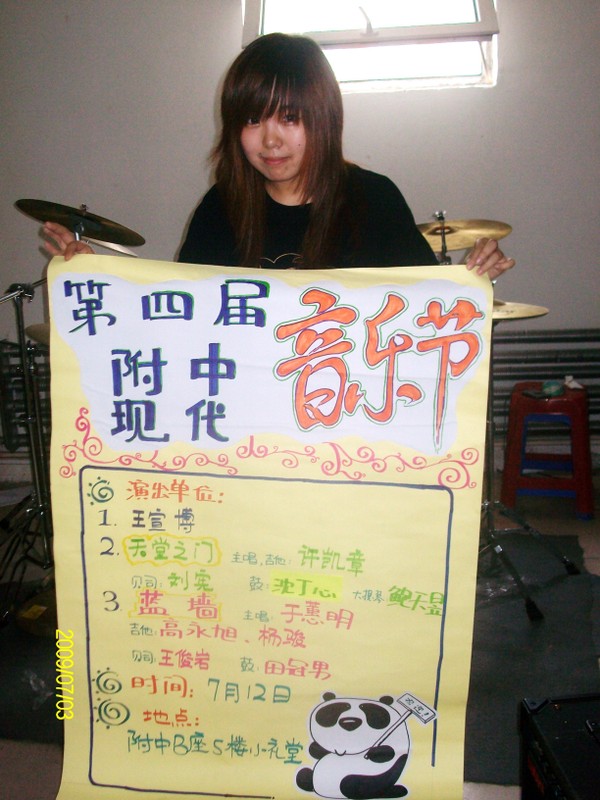 第四届
附中
现代
音乐节
演出单位:
1. 王宣博
2. 天堂之门 主唱.吉他: 许凯章
贝司: 刘宪 鼓: 沈丁心 大提琴 鲍天昱
3. 蓝墙 主唱: 于蕙明
吉他: 高永旭、杨骏
贝司: 王俊岩 鼓: 田冠男
时间: 7月12日
地点:
附中B座5楼小礼堂
2009/07/03